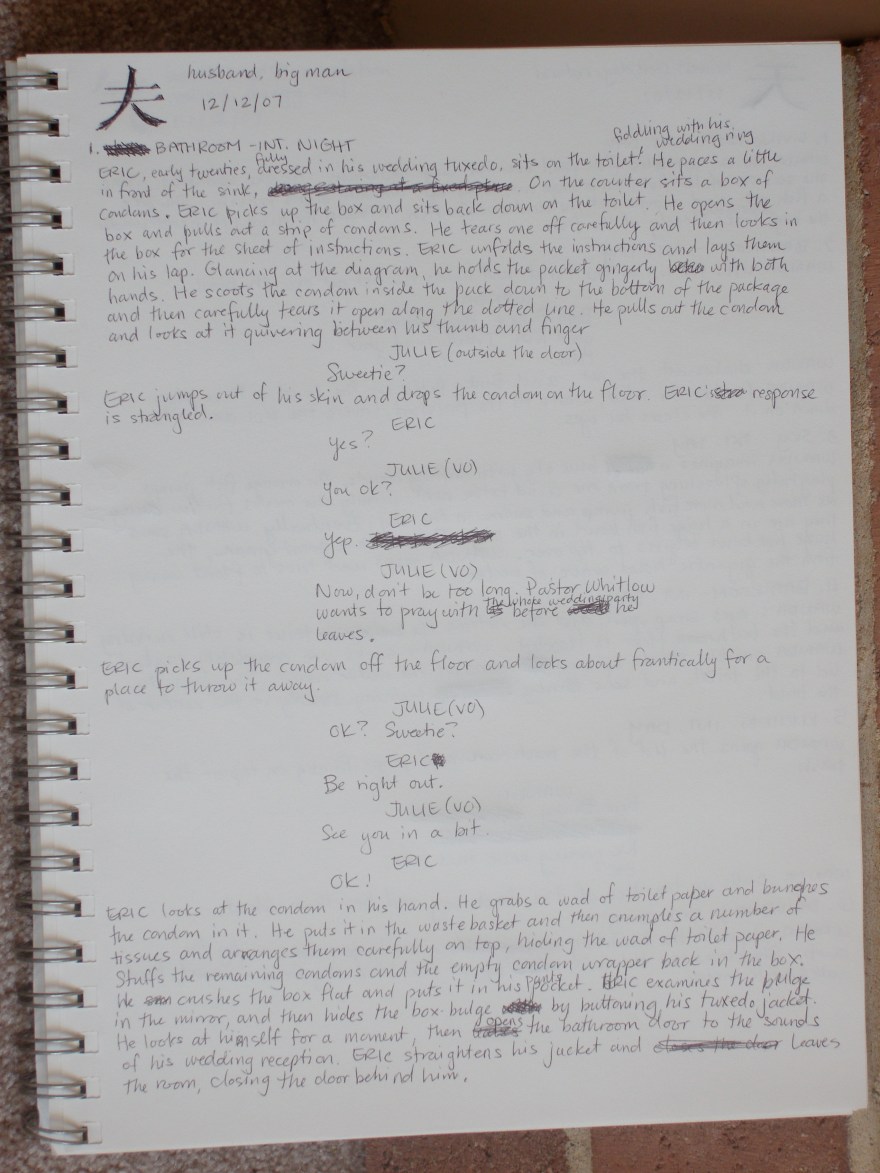 夫 husband, big man
12/12/07
1. BATHROOM - INT. NIGHT
fiddling with his wedding ring
ERIC, early twenties, fully dressed in his wedding tuxedo, sits on the toilet. He paces a little
in front of the sink, . On the counter sits a box of
condoms. ERIC picks up the box and sits back down on the toilet. He opens the
box and pulls out a strip of condoms. He tears one off carefully and then looks in
the box for the sheet of instructions. ERIC unfolds the instructions and lays them
on his lap. Glancing at the diagram, he holds the packet gingerly with both
hands. He scoots the condom inside the pack down to the bottom of the package
and then carefully tears it open along the dotted line. He pulls out the condom
and looks at it quivering between his thumb and finger
JULIE (outside the door)
Sweetie?
ERIC jumps out of his skin and drops the condom on the floor. ERIC's response
is strangled.
ERIC
Yes?
JULIE (VO)
You ok?
ERIC
Yep.
JULIE (VO)
Now, don't be too long. Pastor Whitlow
wants to pray with the whole wedding party before he
leaves.
ERIC picks up the condom off the floor and looks about frantically for a
place to throw it away.
JULIE (VO)
OK? Sweetie?
ERIC
Be right out.
JULIE (VO)
See you in a bit.
ERIC
OK!
ERIC looks at the condom in his hand. He grabs a wad of toilet paper and bunches
the condom in it. He puts it in the wastebasket and then crumples a number of
tissues and arranges them carefully on top, hiding the wad of toilet paper. He
stuffs the remaining condoms and the empty condom wrapper back in the box.
He crushes the box flat and puts it in his pants pocket. ERIC examines the bulge
in the mirror, and then hides the box-bulge by buttoning his tuxedo jacket.
He looks at himself for a moment, then opens the bathroom door to the sounds
of his wedding reception. ERIC straightens his jacket and closes the door leaves
the room, closing the door behind him.